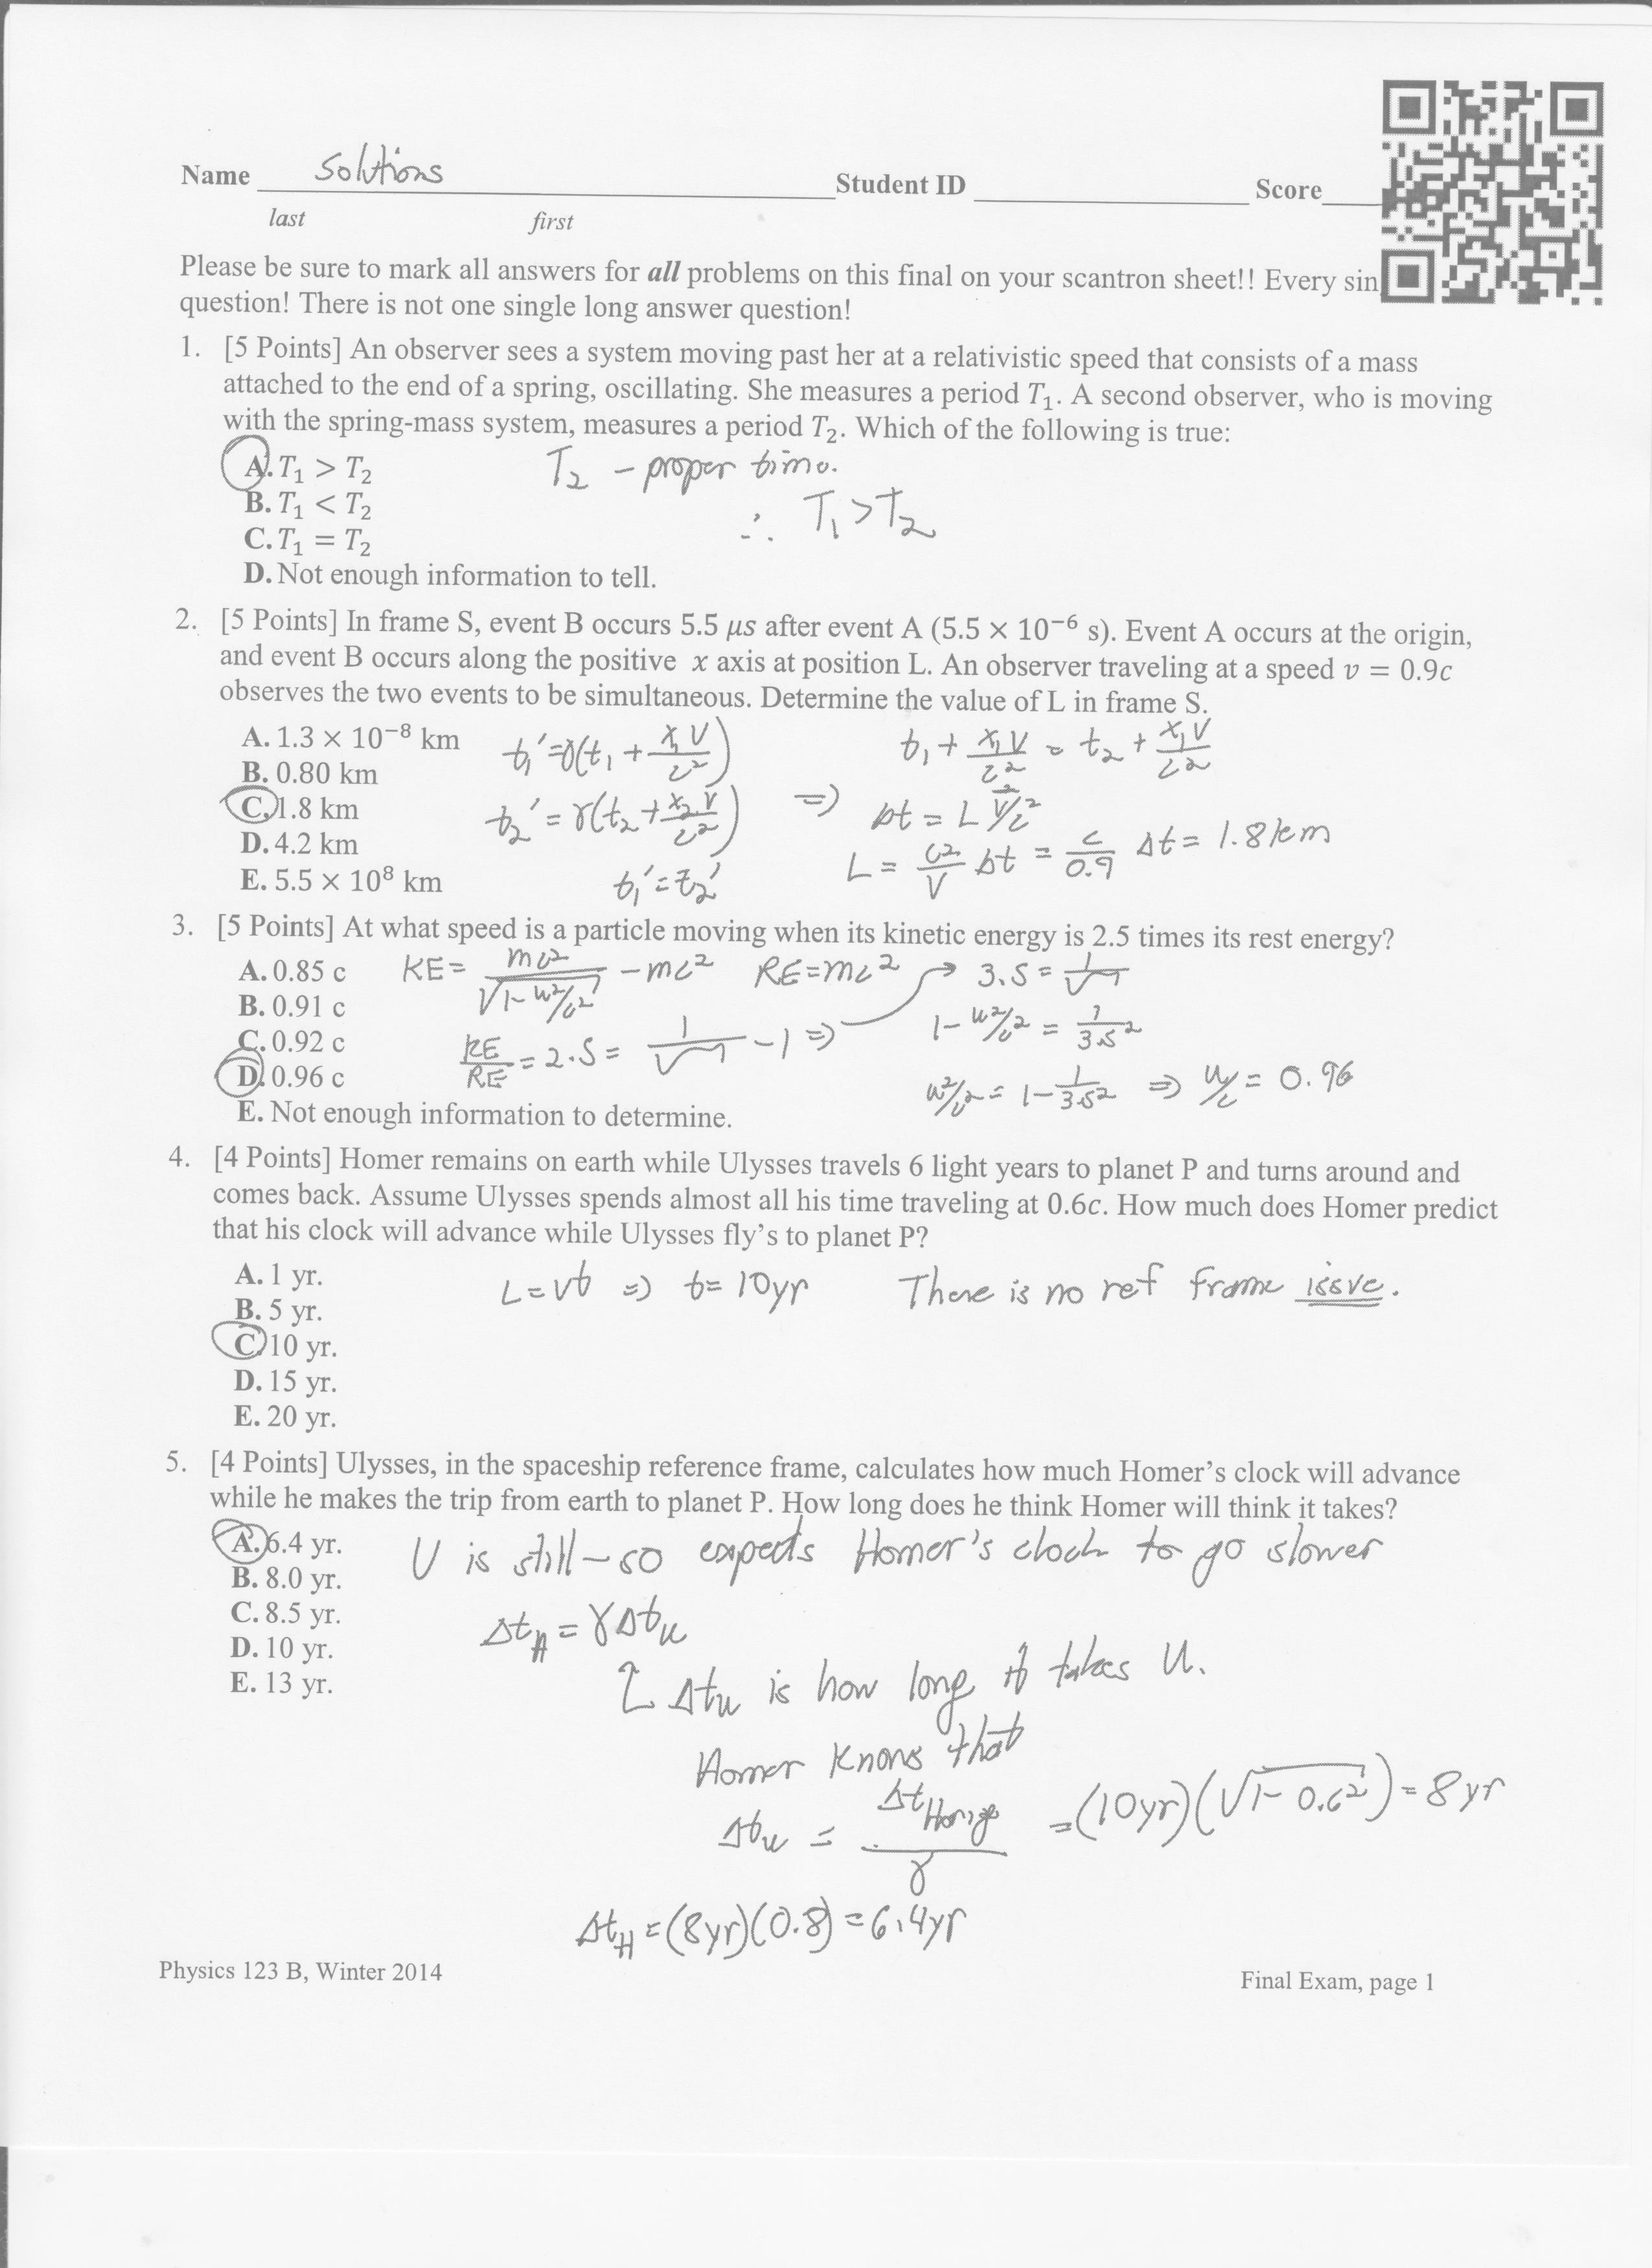 Name Solutions Student ID Score
last first
Please be sure to mark all answers for all problems on this final on your scantron sheet!! Every sin
question! There is not one single long answer question!
1. [5 Points] An observer sees a system moving past her at a relativistic speed that consists of a mass
attached to the end of a spring, oscillating. She measures a period T₁. A second observer, who is moving
with the spring-mass system, measures a period T₂. Which of the following is true:
A. T₁ > T₂ T₂ – proper time.
B. T₁ < T₂ ∴ T₁ > T₂
C. T₁ = T₂
D. Not enough information to tell.
2. [5 Points] In frame S, event B occurs 5.5 μs after event A (5.5 × 10⁻⁶ s). Event A occurs at the origin,
and event B occurs along the positive x axis at position L. An observer traveling at a speed v = 0.9c
observes the two events to be simultaneous. Determine the value of L in frame S.
A. 1.3 × 10⁻⁸ km t₁' = γ(t₁ + x₁v/c²) t₁ + x₁v/c² = t₂ + x₁v/c²
B. 0.80 km
C. 1.8 km t₂' = γ(t₂ + x₂v/c²) ⇒ Δt = L v/c²
D. 4.2 km L = c²/v Δt = c/0.9 Δt = 1.8 km
E. 5.5 × 10⁸ km t₁' = t₂'
3. [5 Points] At what speed is a particle moving when its kinetic energy is 2.5 times its rest energy?
A. 0.85 c KE = mc²/√(1-u²/c²) – mc² RE = mc² → 3.5 = 1/√
B. 0.91 c 1 – u²/c² = 1/3.5²
C. 0.92 c KE/RE = 2.5 = 1/√ – 1 ⇒
D. 0.96 c u²/c² = 1 – 1/3.5² ⇒ u/c = 0.96
E. Not enough information to determine.
4. [4 Points] Homer remains on earth while Ulysses travels 6 light years to planet P and turns around and
comes back. Assume Ulysses spends almost all his time traveling at 0.6c. How much does Homer predict
that his clock will advance while Ulysses fly's to planet P?
A. 1 yr. L = vt ⇒ t = 10yr There is no ref frame issue.
B. 5 yr.
C. 10 yr.
D. 15 yr.
E. 20 yr.
5. [4 Points] Ulysses, in the spaceship reference frame, calculates how much Homer's clock will advance
while he makes the trip from earth to planet P. How long does he think Homer will think it takes?
A. 6.4 yr. U is still – so expects Homer's clock to go slower
B. 8.0 yr.
C. 8.5 yr. Δt_H = γΔt_u
D. 10 yr.
E. 13 yr. Δt_u is how long it takes U.
Homer knows that
Δt_u = Δt/γ = (10yr)(√1-0.6²) = 8yr
Δt_H = (8yr)(0.8) = 6.4yr
Physics 123 B, Winter 2014 Final Exam, page 1